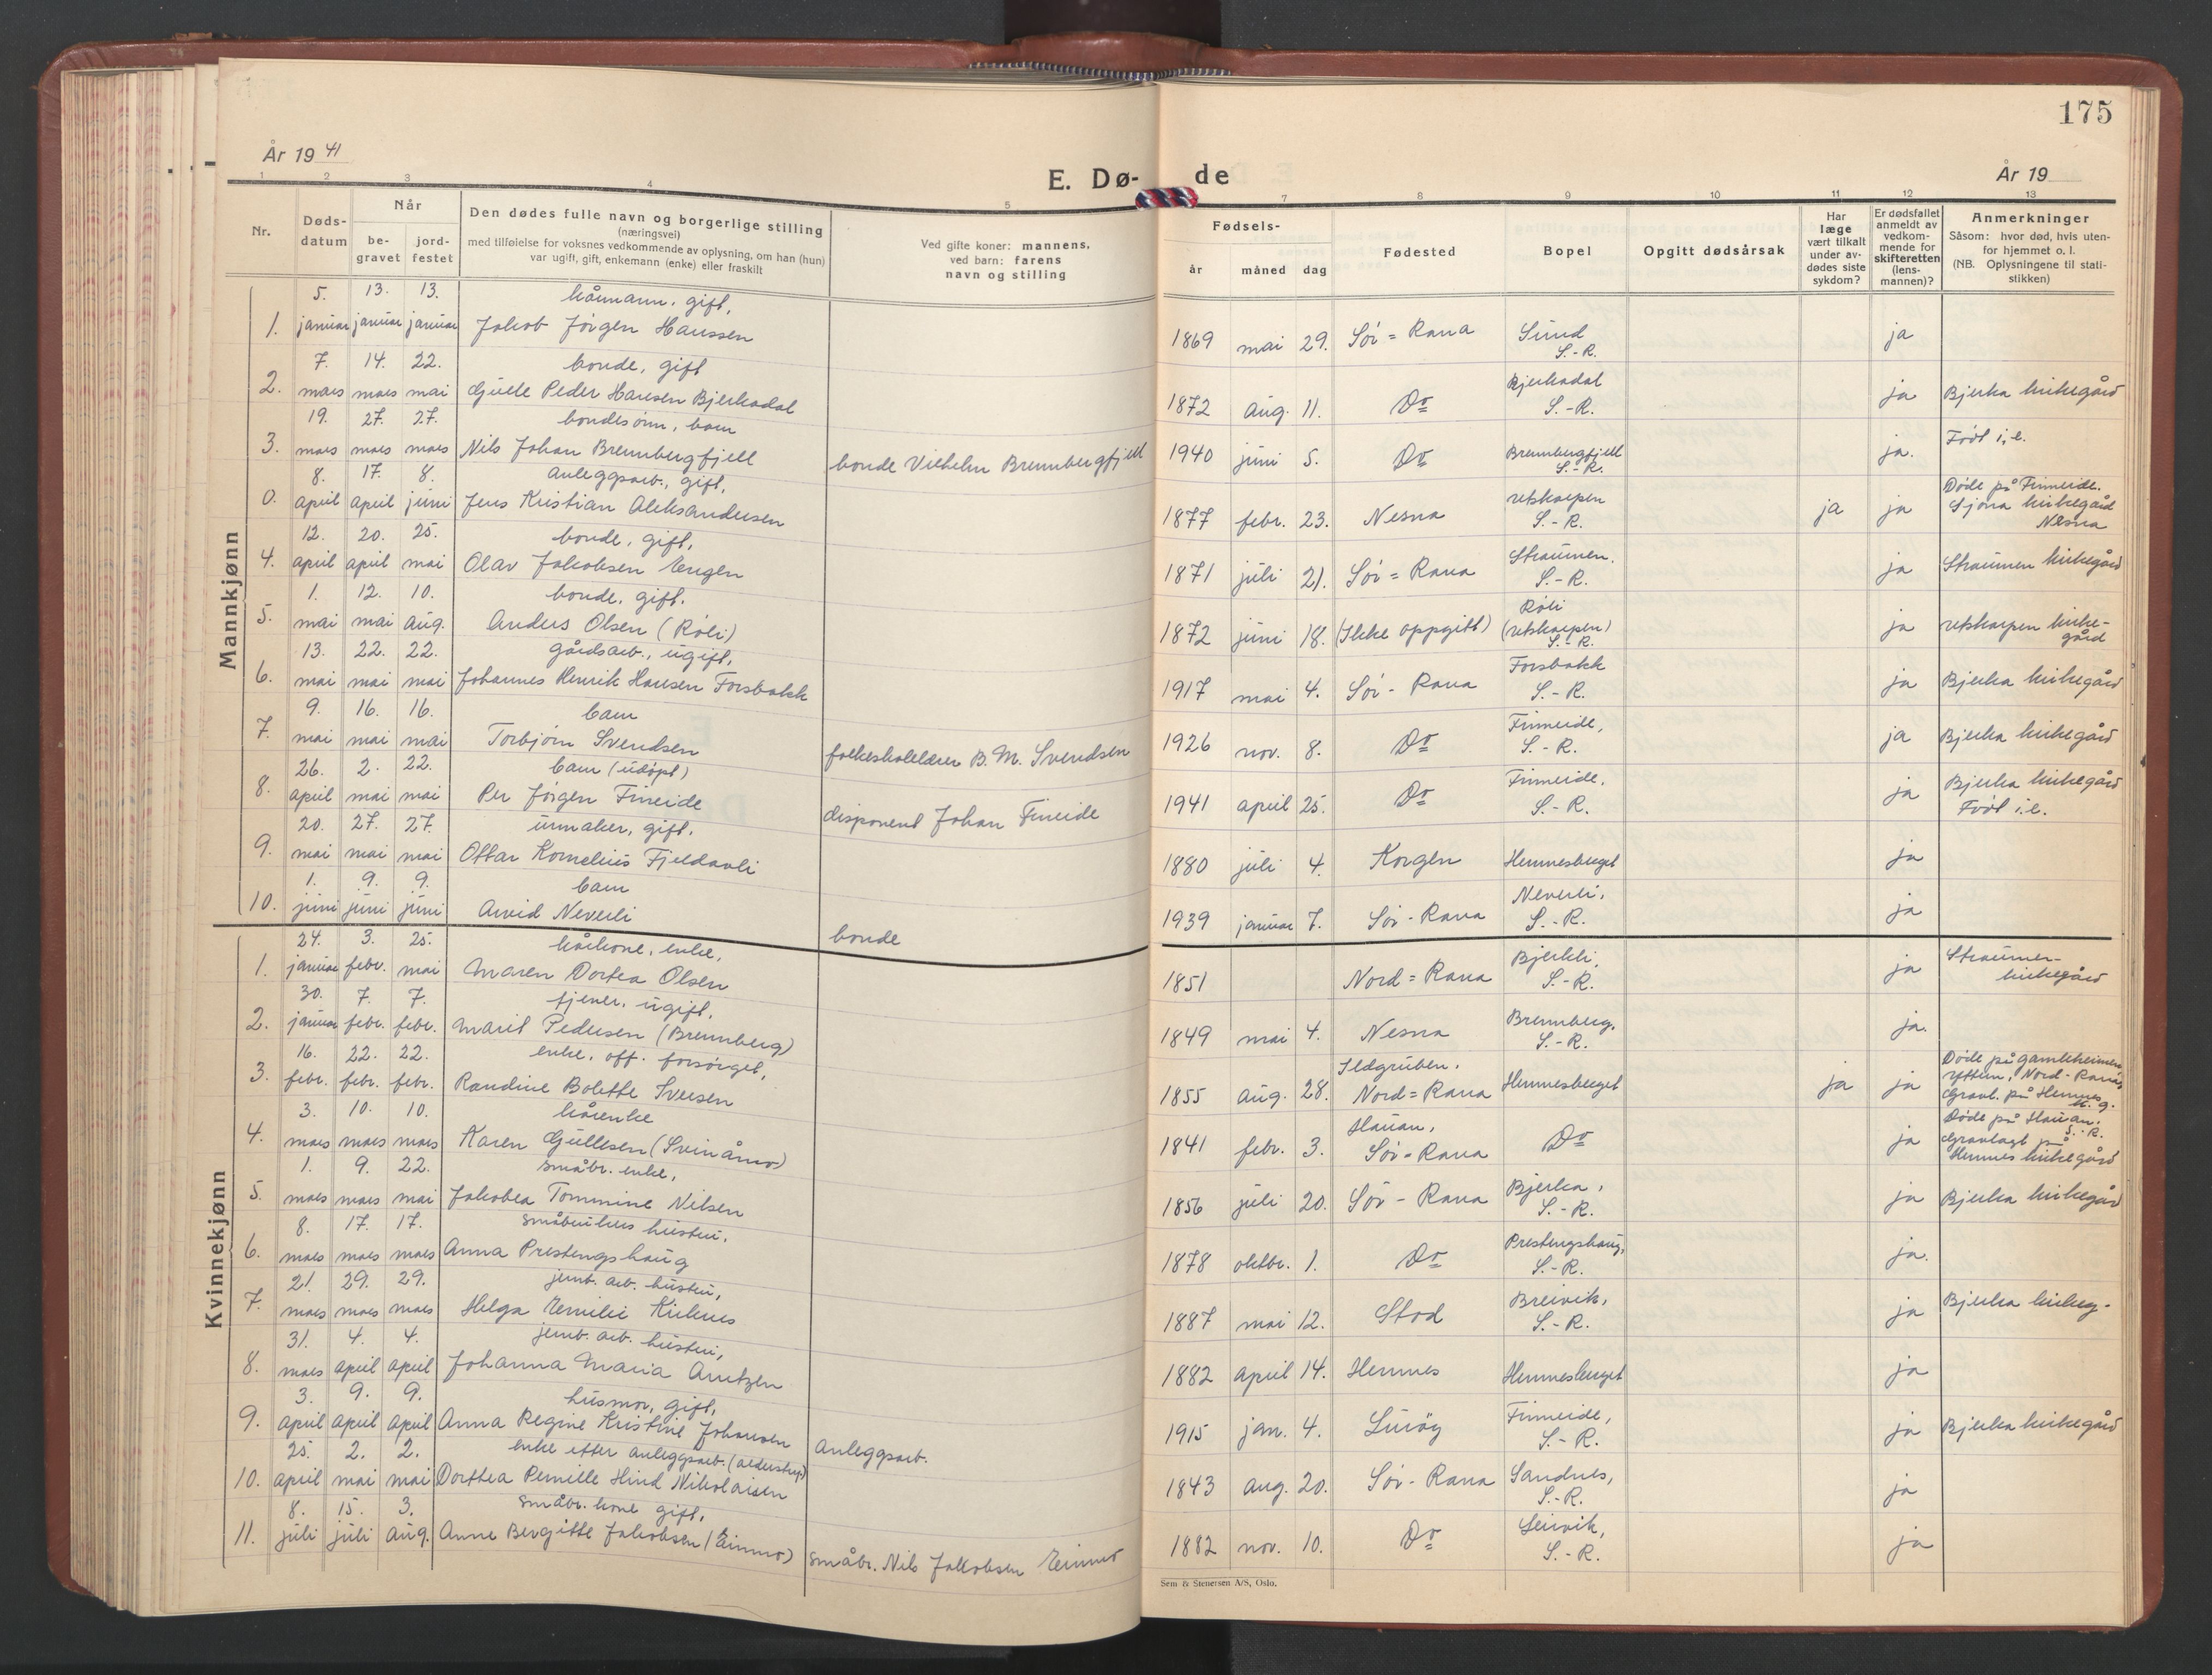 175
År 1941
E. Dø-
de
År 19
1 2 3 4 5 7 8 9 10 11 12 13
Nr.
Døds-
datum
Når
be-
gravet
jord-
festet
Den dødes fulle navn og borgerlige stilling
(næringsvei)
med tilføielse for voksnes vedkommende av oplysning, om han (hun)
var ugift, gift, enkemann (enke) eller fraskilt
Ved gifte koner: mannens,
ved barn: farens
navn og stilling
Fødsels-
år måned dag
Fødested
Bopel
Opgitt dødsårsak
Har
læge
vært tilkalt
under av-
dødes siste
sykdom?
Er dødsfallet
anmeldt av
vedkom-
mende for
skifteretten
(lens-
mannen)?
Anmerkninger
Såsom: hvor død, hvis uten-
for hjemmet o. l.
(NB. Oplysningene til stati-
stikken)
Mannkjønn
5. 13. 13. kårmann, gift,
1. januar januar januar Jakob Jørgen Hanssen 1869 mai 29. Sør=Rana Sund S.-R. ja
7. 14. 22. bonde, gift
2. mars mars mai Gulle Peder Hansen Bjerkadal 1872 aug. 11. Do Bjerkadal S.-R. ja Bjerka kirkegård
19. 27. 27. bondesønn, barn
3. mars mars mars Nils Johan Brennbergfjell bonde Vilhelm Brennbergfjell 1940 juni 5. Do Brennbergfjell S.-R. ja. Født i.e.
8. 17. 8. anleggsarb., gift,
0. april april juni Jens Kristian Aleksandersen 1877 febr. 23. Nesna Utskarpen S.-R. ja ja Døde på Finneide. Sjona kirkegård Nesna
12. 20. 25. bonde, gift,
4. april april mai Olav Jakobsen Engen 1871 juli 21. Sør=Rana Straumen. S.-R. ja Straumen kirkegård
1. 12. 10. bonde, gift.
5. mai mai aug. Anders Olsen (Røli) 1872 juni 18. (Ikke oppgitt) Røli (Utskarpen) S.-R. ja Utskarpen kirke-gård
13. 22. 22. gårdsarb., ugift,
6. mai mai mai Johannes Henrik Hansen Forsbakk 1917 mai 4. Sør-Rana Forsbakk S.-R. ja Bjerka kirkegård
9. 16. 16. barn
7. mai mai mai Torbjørn Svendsen folkeskolelærer B.M. Svendsen 1926 nov. 8. Do Finneide, S.-R. ja Bjerka kirkegård
26. 2. 22. barn (udøpt)
8. april mai mai Per Jørgen Fineide disponent Johan Fineide 1941 april 25. Do Finneide, S.-R. ja Bjerka kirkegård Født i.e.
20. 27. 27. urmaker, gift.
9. mai mai mai Ottar Kornelius Fjeldavli 1880 juli 4. Korgen Hemnesberget ja
1. 9. 9. barn
10. juni juni juni Arvid Neverli bonde 1939 januar 7. Sør-Rana Neverli, S.-R. ja
Kvinnekjønn
24. 3. 25. kårkone, enke,
1. januar febr. mai Maren Dortea Olsen 1851 Nord=Rana Bjerkli, S.-R. ja Straumen-kirkegård
30. 7. 7. tjener, ugift,
2. januar febr. febr. Marit Pedersen (Brennberg) 1849 mai 4. Nesna Brennberg, S.-R. ja.
16. 22. 22. enke, off. forsørget,
3. febr. febr. febr. Randine Bolette Iversen 1855 aug. 28. Ildgruben, Nord=Rana Hemnesberget ja ja Døde på gamleheimen Ytteren, Nord-Rana, Gravl. på Hemnes k.g.
3. 10. 10. kårenke
4. mars mars mars Karen Gullesen (Svinåmo) 1841 febr. 3. Hauan, Sør-Rana Do ja Døde på Hauan, S.-R. Gravlagt på Hemnes kirkegård
1. 9. 22. småbr. enke,
5. mars mars mai Jakobea Tommine Nilsen 1856 juli 20. Sør-Rana Bjerka, S.-R. ja Bjerka kirkegård
8. 17. 17. småbrukers hustru,
6. mars mars mars Anna Prestengshaug 1878 oktbr. 1. Do Prestengshaug, S.-R. ja.
21. 29. 29. jernb. arb. hustru,
7. mars mars mars Helga Emilie Kirknes 1887 mai 12. Stod Breivik, S.-R. ja Bjerka kirkeg.
31. 4. 4. jernb. arb. hustru,
8. mars april april Johanna Maria Arntzen 1882 april 14. Hemnes Hemnesberget ja
3. 9. 9. husmor, gift,
9. april april april Anna Regine Kristine Johansen anleggsarb. 1915 jan. 4. Lurøy Finneide, S.-R. ja Bjerka kirkegård
25. 2. 2. enke etter anleggsarb. (alderstryg)
10. april mai mai Dorthea Pernille Hind Nikolaisen 1843 aug. 20. Sør-Rana Sandnes, S.-R. ja
8. 15. 3. småbr. kone gift,
11. juli juli aug. Anne Bergitte Jakobsen (Einmo) småbr. Nils Jakobsen Einmo 1882 nov. 10. Do Leirvik, S.-R. ja
Sem & Stenersen A/S, Oslo.